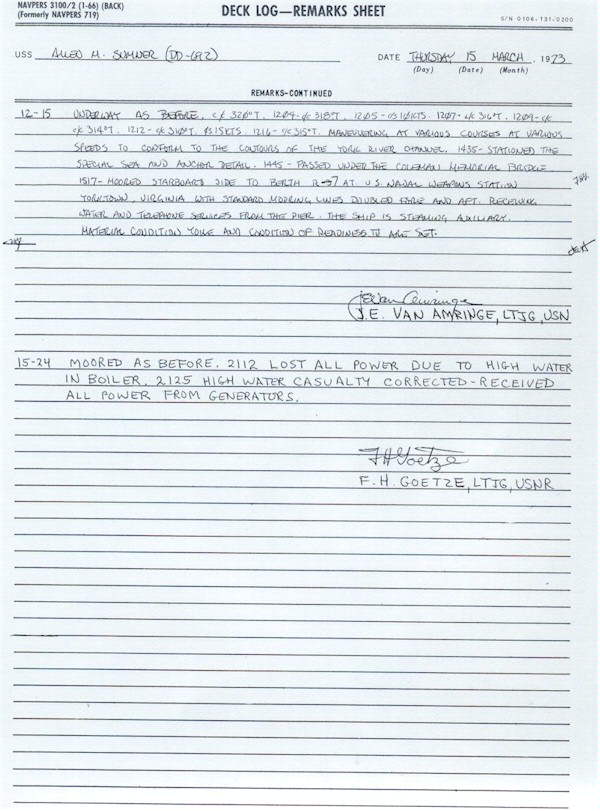 NAVPERS 3100/2 (1-66) (BACK)
(Formerly NAVPERS 719)
DECK LOG—REMARKS SHEET
S/N 0104-131-0300
USS ALLEN M. SUMNER (DD-692) DATE THURSDAY 15 MARCH, 1973
(Day) (Date) (Month)
REMARKS-CONTINUED
12-15 UNDERWAY AS BEFORE. c/c 320°T. 1204- c/c 318°T. 1205- cs 10KTS. 1207- c/c 316°T. 1209- c/c
c/c 314°T. 1212- c/c 310°T. 1216- c/c 315°T. MANEUVERING AT VARIOUS COURSES AT VARIOUS
SPEEDS TO CONFORM TO THE CONTOURS OF THE YORK RIVER CHANNEL. 1435- STATIONED THE
SPECIAL SEA AND ANCHOR DETAIL. 1445- PASSED UNDER THE COLEMAN MEMORIAL BRIDGE.
1517- MOORED STARBOARD SIDE TO BERTH AT U.S. NAVAL WEAPONS STATION
YORKTOWN, VIRGINIA WITH STANDARD MOORING LINES DOUBLED FORE AND AFT. RECEIVING
WATER AND TELEPHONE SERVICES FROM THE PIER. THE SHIP IS STEAMING AUXILIARY.
MATERIAL CONDITION YOKE AND CONDITION OF READINESS IV ARE SET.
J.E. Van Amringe
J.E. VAN AMRINGE, LTJG, USN
15-24 MOORED AS BEFORE. 2112 LOST ALL POWER DUE TO HIGH WATER
IN BOILER. 2125 HIGH WATER CASUALTY CORRECTED-RECEIVED
ALL POWER FROM GENERATORS.
F H Goetze
F. H. GOETZE, LTJG, USNR